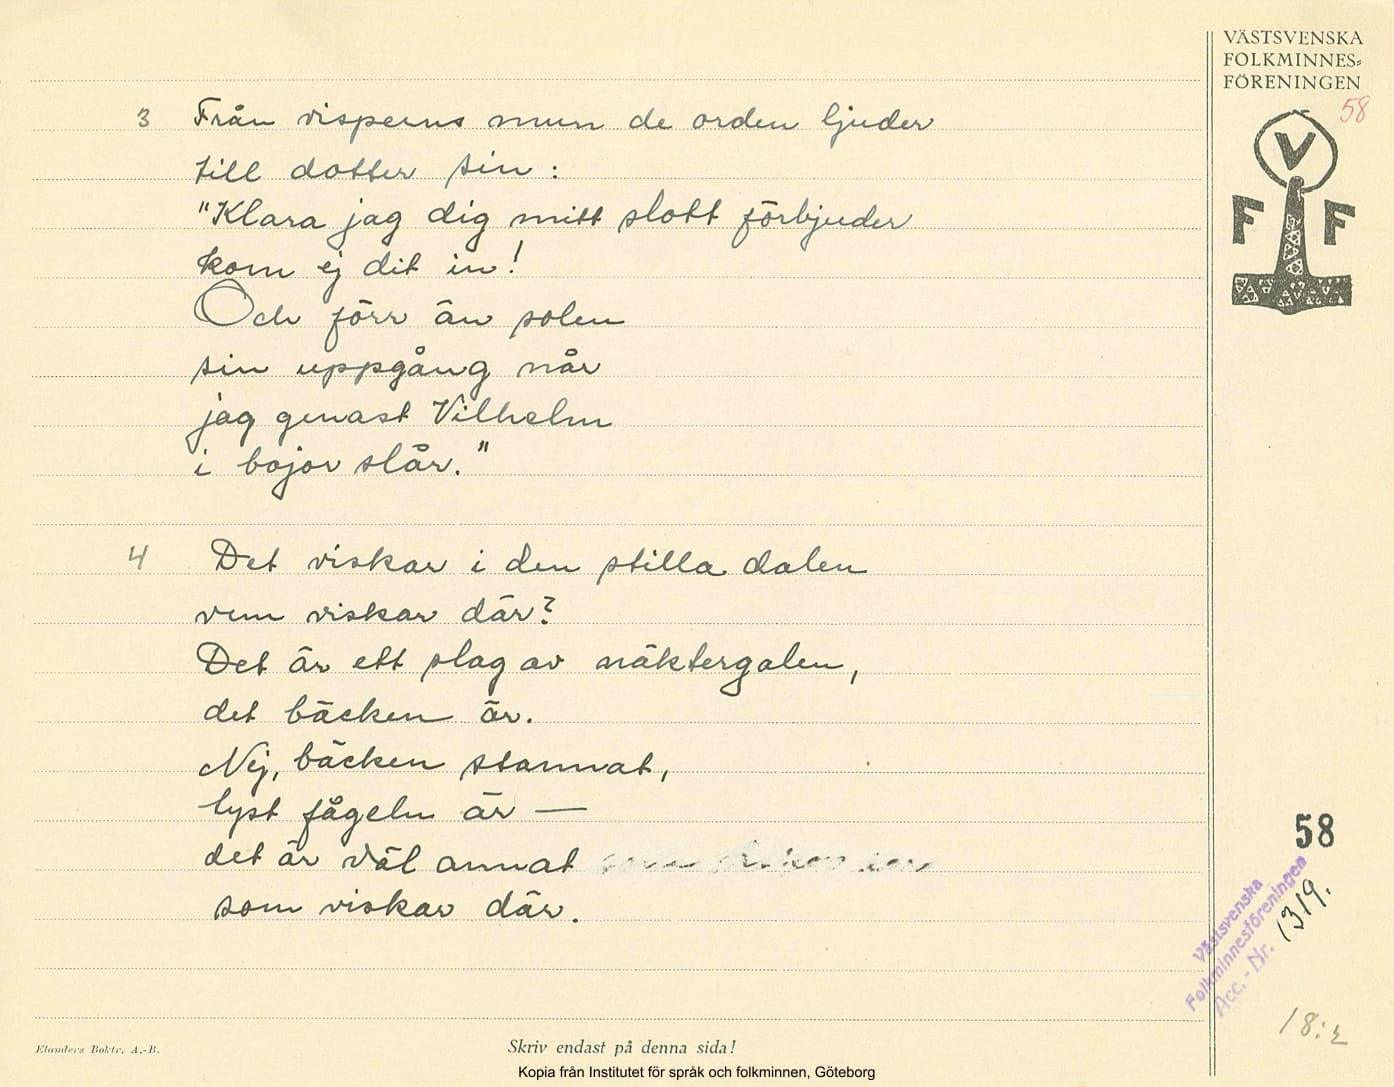 VÄSTSVENSKA
FOLKMINNES-
FÖRENINGEN
58
V
F F
3 Från visperns mun de orden ljuder
till dotter sin:
"Klara jag dig mitt slott förbjuder
kom ej dit in!
Och förr än solen
sin uppgång når
jag genast Vilhelm
i bojor slår."
4 Det viskar i den stilla dalen
vem viskar där?
Det är ett slag av näktergalen,
det bäcken är.
Nej, bäcken stannat,
tyst fågeln är —
det är väl annat
som viskar där.
58
Västsvenska
Folkminnesföreningen
Acc.-Nr. 1319.
18:2
Elanders Boktr. A.-B.
Skriv endast på denna sida!
Kopia från Institutet för språk och folkminnen, Göteborg